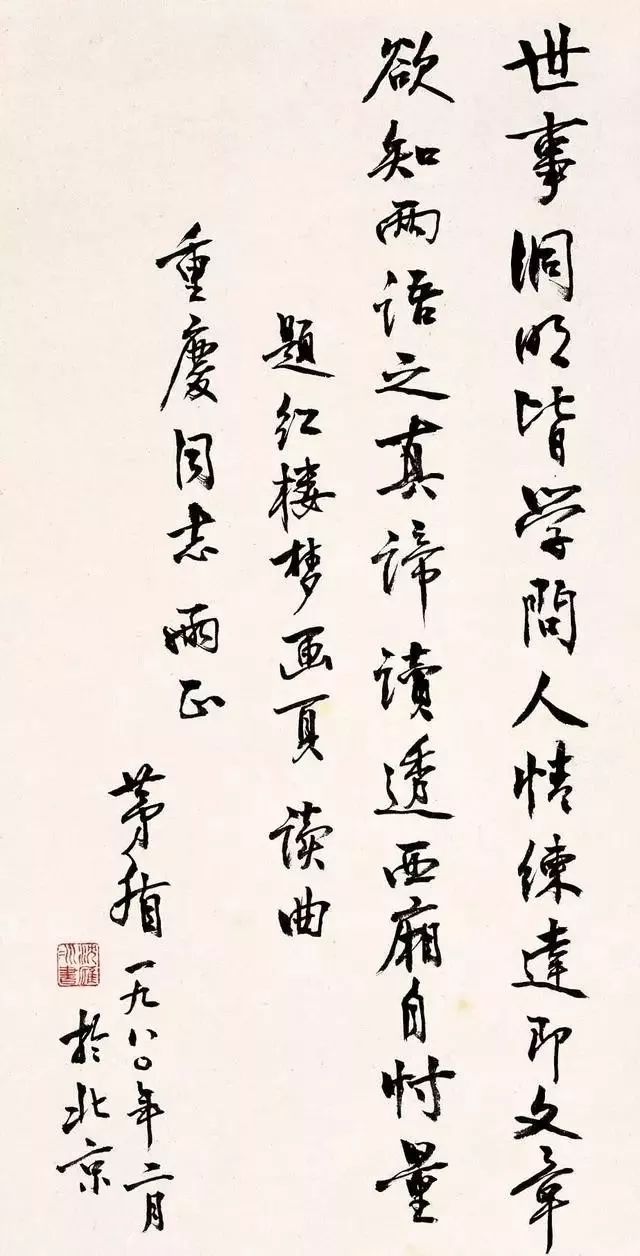 世事洞明皆学問人情練達即文章
欲知两语之真谛讀透西廂自忖量
题红楼梦画页 读曲
重慶同志 正
茅盾 一九八〇年二月
於北京
沈雁冰書